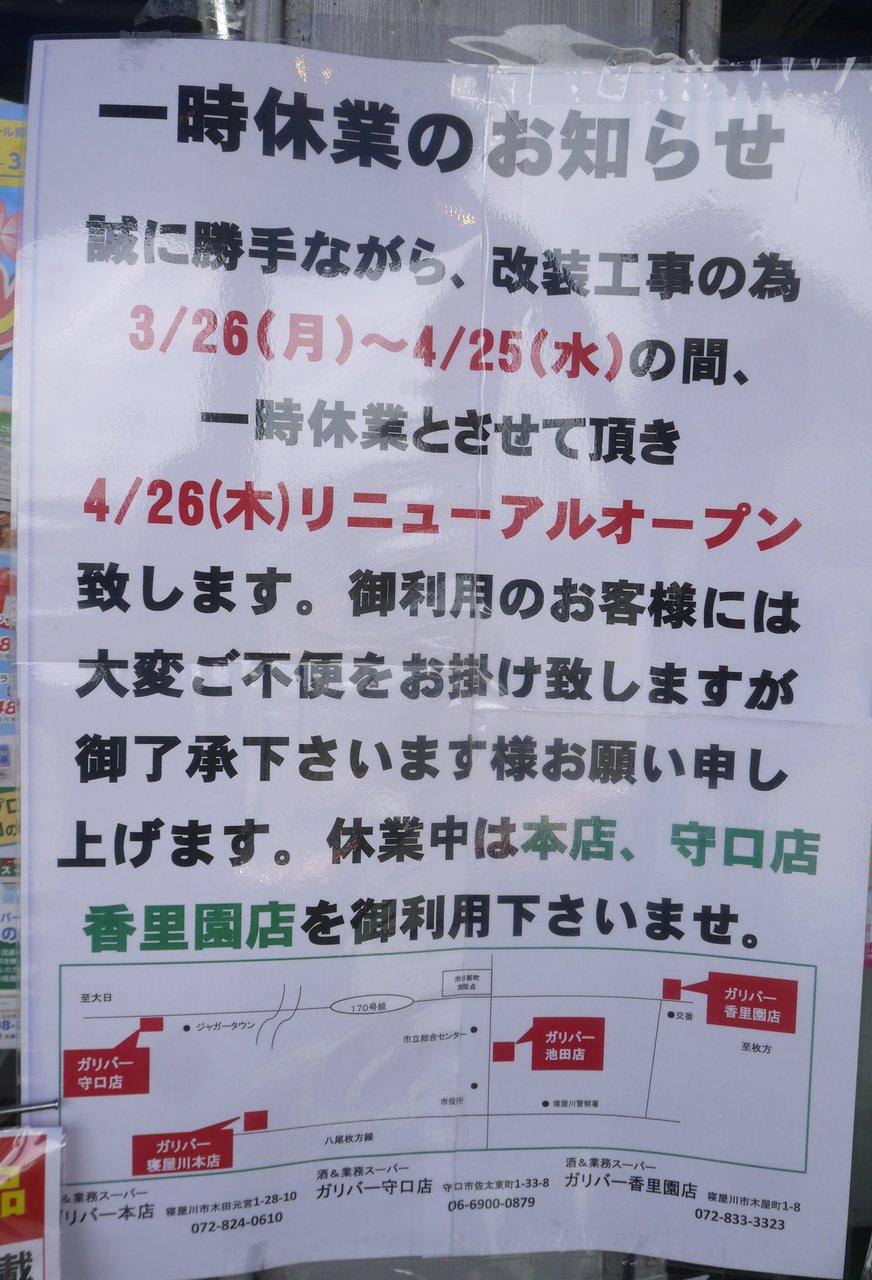 一時休業のお知らせ
誠に勝手ながら、改装工事の為
3/26(月)～4/25(水)の間、
一時休業とさせて頂き
4/26(木)リニューアルオープン
致します。御利用のお客様には
大変ご不便をお掛け致しますが
御了承下さいます様お願い申し
上げます。休業中は本店、守口店
香里園店を御利用下さいませ。
至大日
ジャガータウン
170号線
池田新町
交差点
市立総合センター
ガリバー
池田店
ガリバー
香里園店
交番
至枚方
ガリバー
守口店
市役所
寝屋川警察署
ガリバー
寝屋川本店
八尾枚方線
酒&業務スーパー
ガリバー守口店
守口市佐太東町1-33-8
06-6900-0879
酒&業務スーパー
ガリバー香里園店
寝屋川市木屋町1-8
072-833-3323
&業務スーパー
リバー本店
寝屋川市木田元宮1-28-10
072-824-0610
品
載